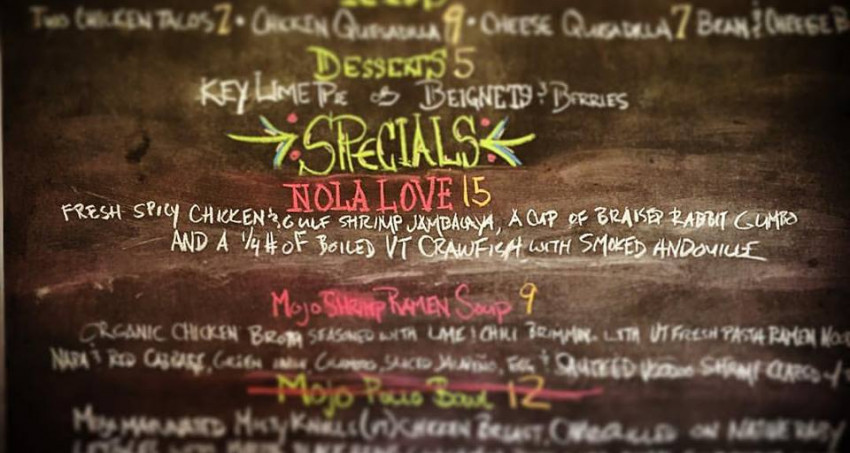 Two Chicken Tacos 7 • Chicken Quesadilla 9 • Cheese Quesadilla 7 Bean & Cheese B
Desserts 5
Key Lime Pie or Beignets & Berries
SPECIALS
NOLA LOVE 15
FRESH SPICY CHICKEN & GULF SHRIMP JAMBALAYA, A CUP OF BRAISED RABBIT GUMBO
AND A 1/4 # OF BOILED VT CRAWFISH WITH SMOKED ANDOUILLE
Mojo Shrimp Ramen Soup 9
ORGANIC CHICKEN BROTH SEASONED WITH LIME & CHILI WITH VT FRESH PASTA RAMEN
NAPA & RED CABBAGE, GREEN CILANTRO, SLICED JALAPEÑO, EGG & SAUTEED VOODOO SHRIMP
Mojo Pollo Bowl 12
MOJO MARINATED MISTY KNOLLS (VT) CHICKEN BREAST, ON